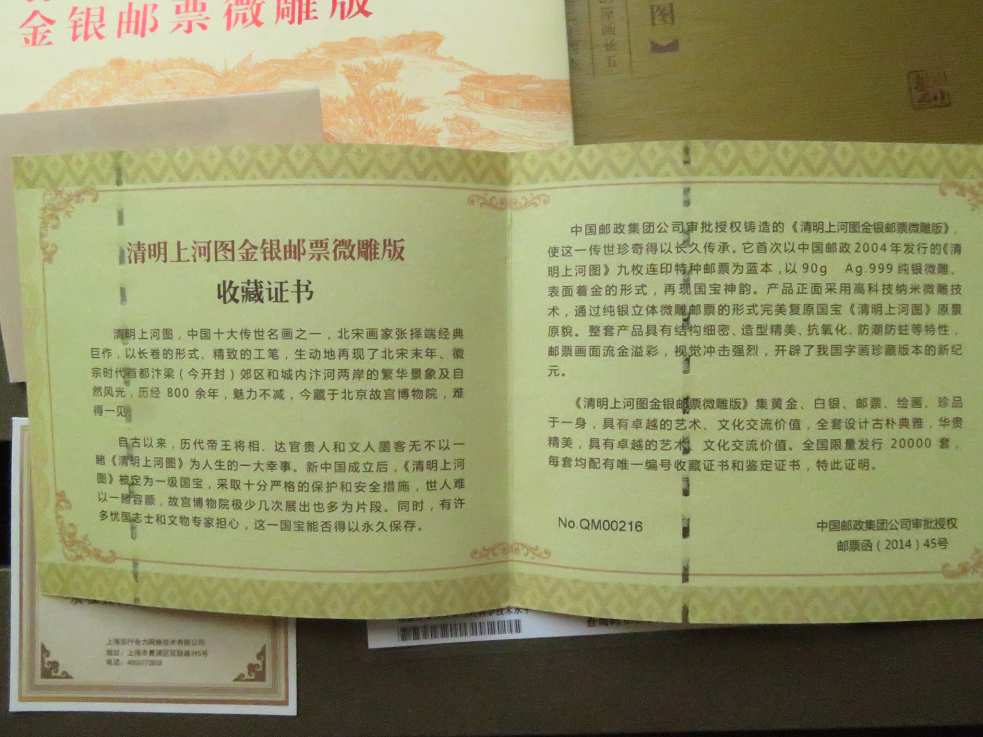 金银邮票微雕版
图
清明上河图金银邮票微雕版
收藏证书
清明上河图，中国十大传世名画之一，北宋画家张择端经典
巨作，以长卷的形式，精致的工笔，生动地再现了北宋末年、徽
宗时代首都汴梁（今开封）郊区和城内汴河两岸的繁华景象及自
然风光，历经 800 余年，魅力不减，今藏于北京故宫博物院，难
得一见。
自古以来，历代帝王将相、达官贵人和文人墨客无不以一
睹《清明上河图》为人生的一大幸事。新中国成立后，《清明上河
图》被定为一级国宝，采取十分严格的保护和安全措施，世人难
以一睹容颜，故宫博物院极少几次展出也多为片段。同时，有许
多忧国志士和文物专家担心，这一国宝能否得以永久保存。
中国邮政集团公司审批授权铸造的《清明上河图金银邮票微雕版》，
使这一传世珍奇得以长久传承。它首次以中国邮政2004年发行的《清
明上河图》九枚连印特种邮票为蓝本，以 90g Ag.999 纯银微雕、
表面着金的形式，再现国宝神韵。产品正面采用高科技纳米微雕技
术，通过纯银立体微雕邮票的形式完美复原国宝《清明上河图》原景
原貌。整套产品具有结构细密、造型精美、抗氧化、防潮防蛀等特性，
邮票画面流金溢彩，视觉冲击强烈，开辟了我国字画珍藏版本的新纪
元。
《清明上河图金银邮票微雕版》集黄金、白银、邮票、绘画、珍品
于一身，具有卓越的艺术、文化交流价值，全套设计古朴典雅，华贵
精美，具有卓越的艺术、文化交流价值。全国限量发行 20000 套，
每套均配有唯一编号收藏证书和鉴定证书，特此证明。
No.QM00216
中国邮政集团公司审批授权
邮票函（2014）45号